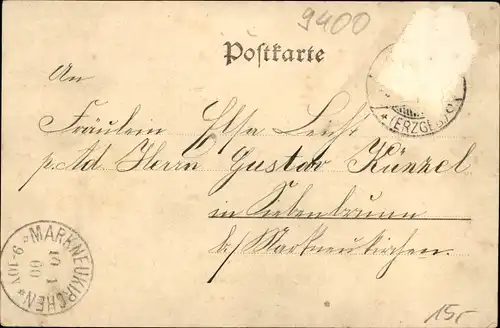 9400
Postkarte
An
(ERZGEB.)
Fräulein Elsa Leicht
p. Ad. Herrn Gustav Künzel
in Siebenbrunn
b/ Markneukirchen.
MARKNEUKIRCHEN
19 1
00
9-10V
15,-